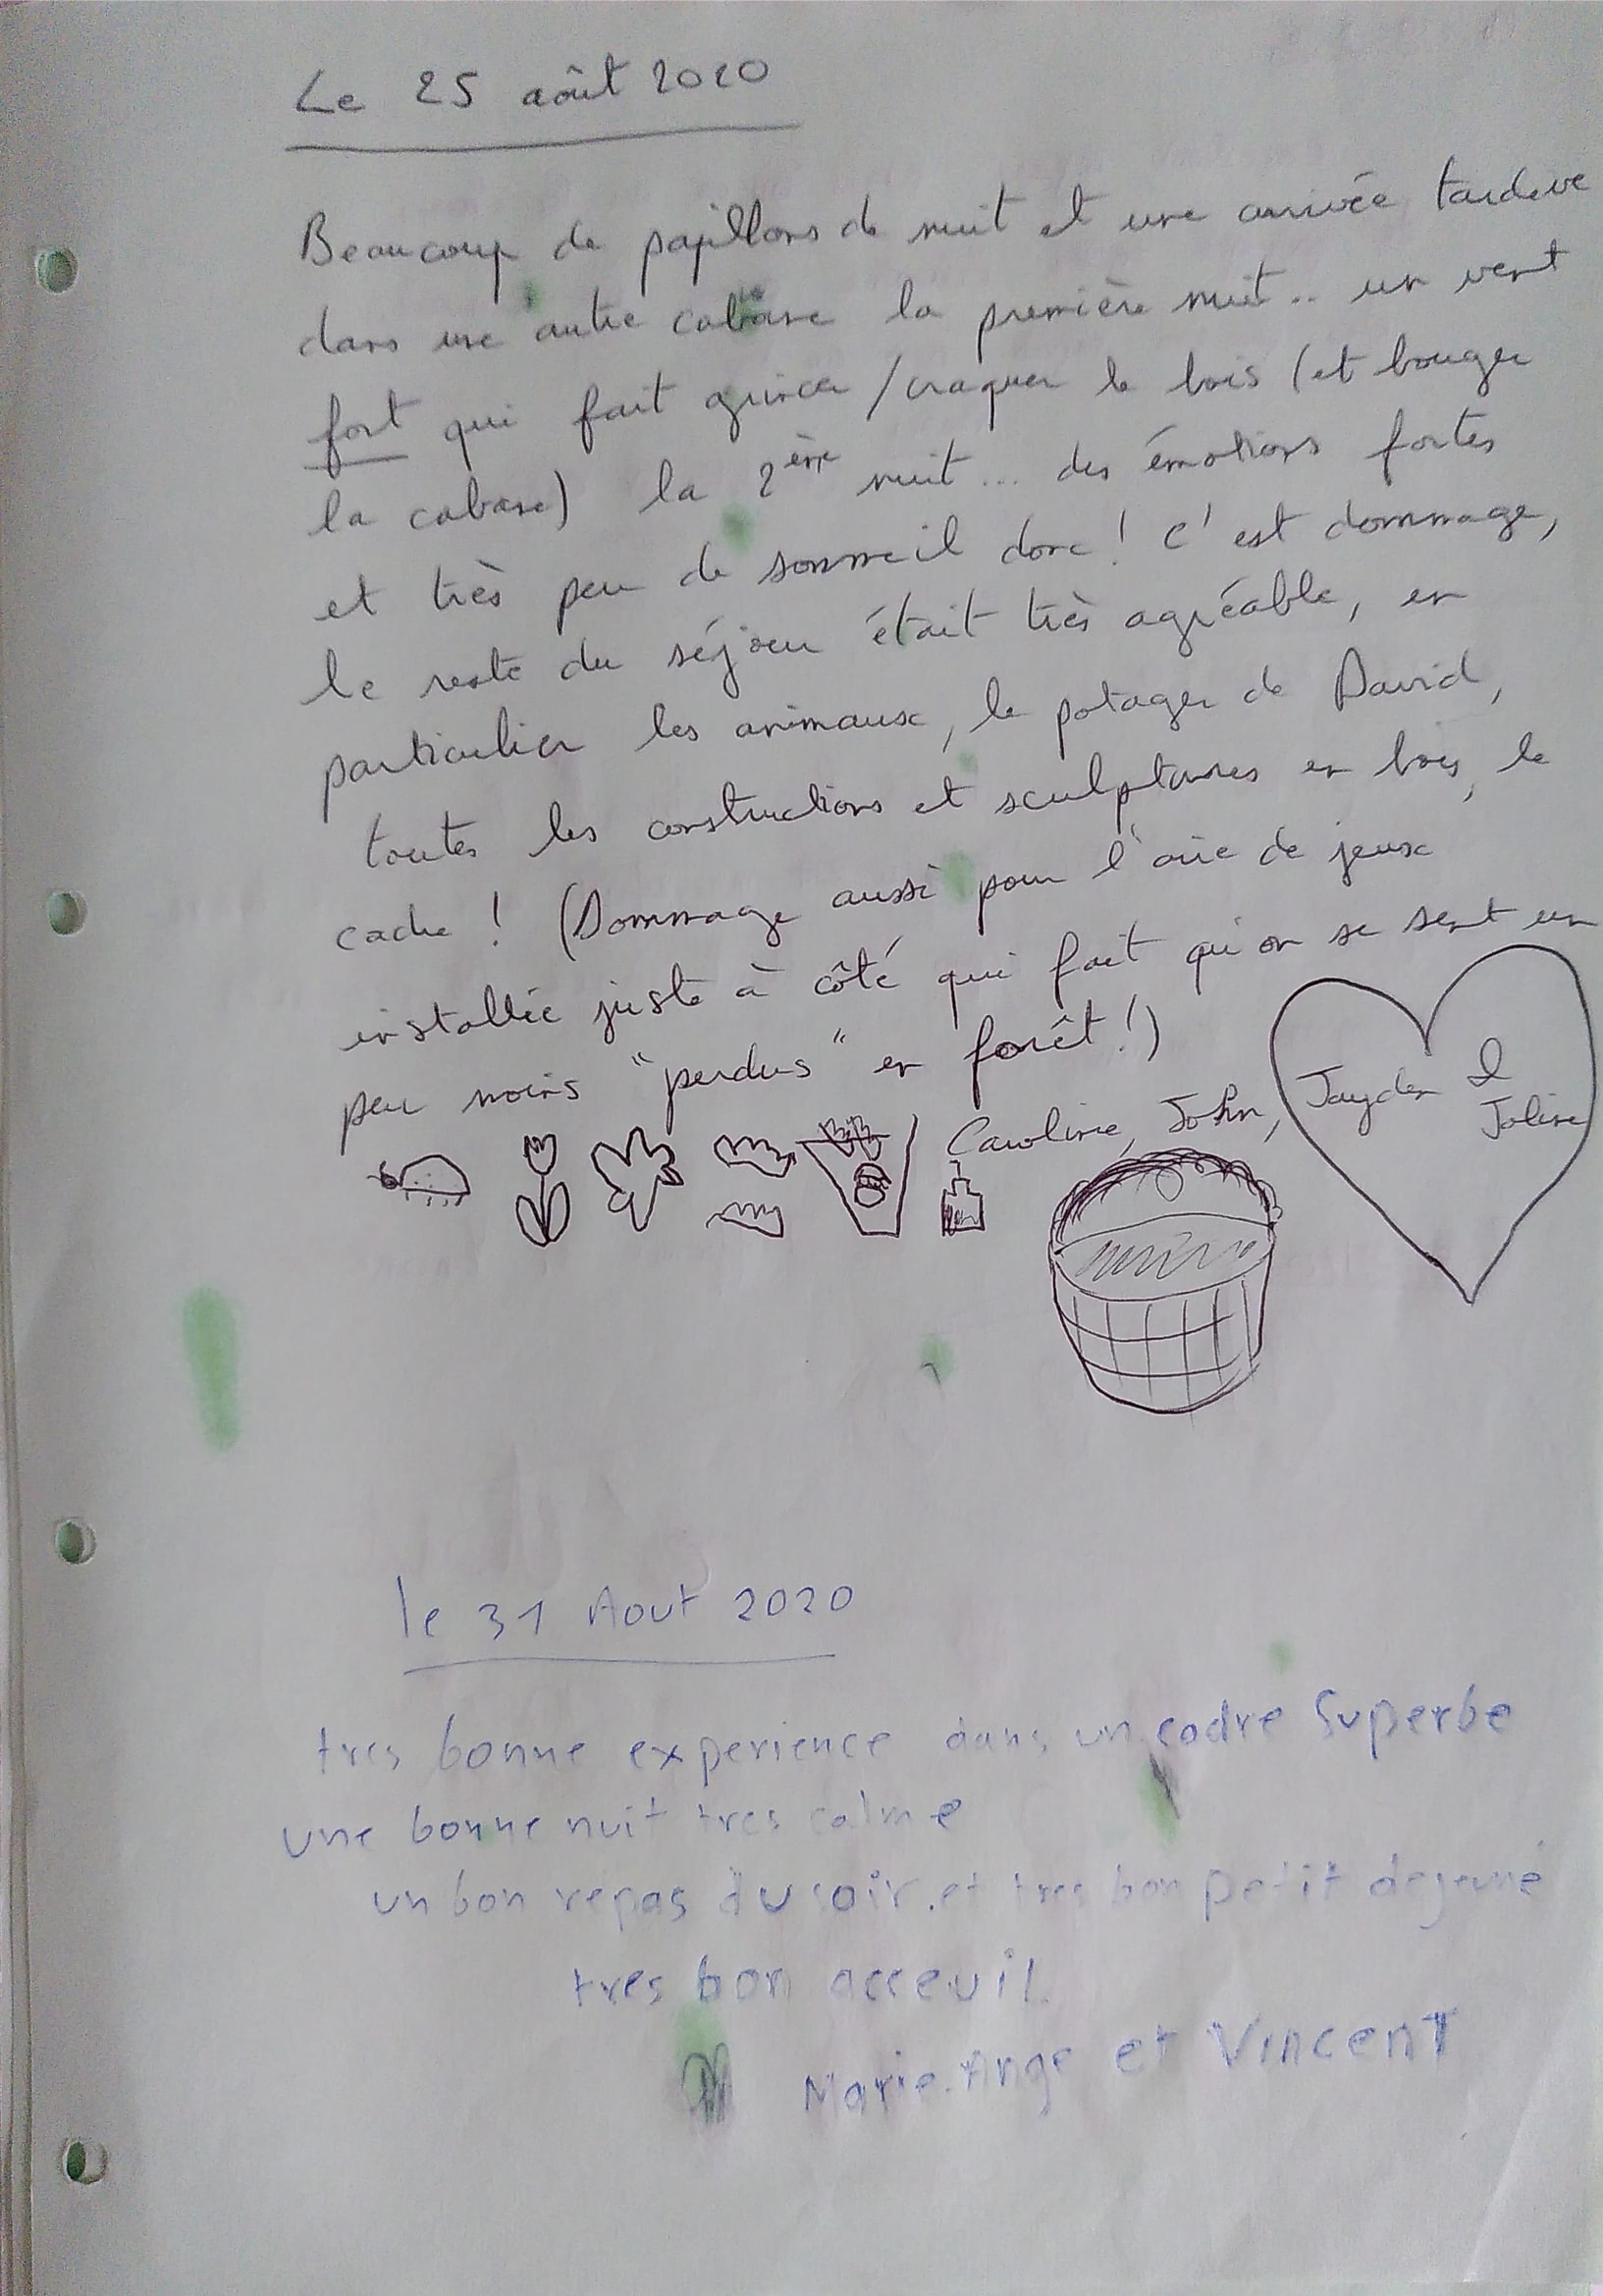 Le 25 août 2020
Beaucoup de papillons de nuit et une arrivée tardive
dans une autre cabane la première nuit.. un vent
fort qui fait grincer / craquer le bois (et bouger
la cabane) la 2ère nuit... des émotions fortes
et très peu de sommeil donc ! C'est dommage,
le reste du séjour était très agréable, en
particulier les animaux, le potager de David,
toutes les constructions et sculptures en bois, le
cadre ! (Dommage aussi pour l'aire de jeux
installée juste à côté qui fait qu'on se sent un
peu moins "perdus" en forêt !)
Caroline, John, Jayden &
Joline
le 31 Aout 2020
tres bonne experience dans un cadre Superbe
une bonne nuit tres calme
un bon repas du soir. et tres bon petit dejeuné
tres bon acceuil
Marie-Ange et Vincent